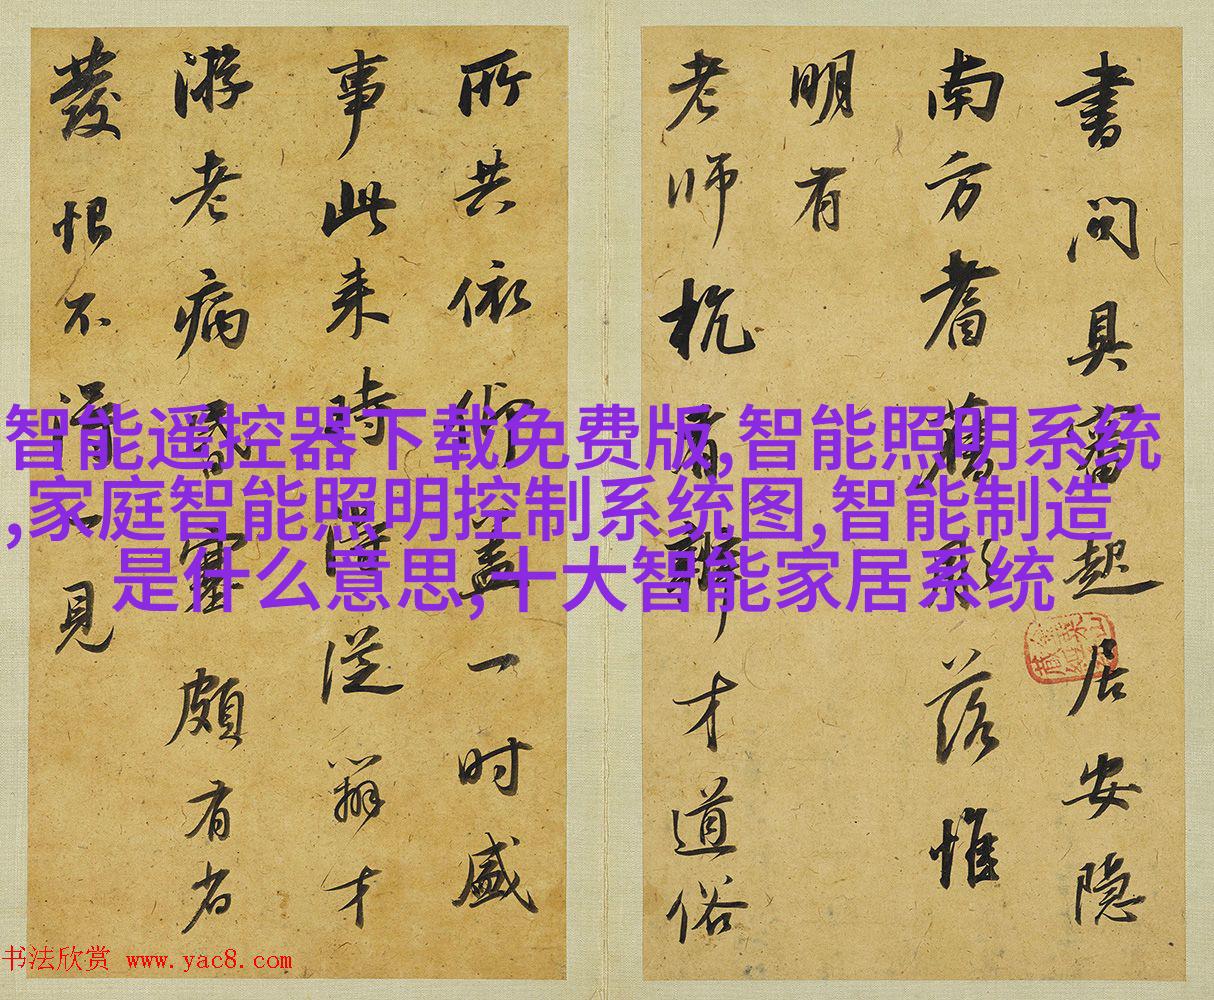 書問具審起居安隱
南方耆舊彫落惟
明有
老師杭有辯才道俗
所共依仰蓋一時盛
事比來時得從辯才
游老病昏塞頗有省
發恨不得一見
智能遥控器下载免费版,智能照明系统
,家庭智能照明控制系统图,智能制造
是什么意思,十大智能家居系统
书法欣赏 www.yac8.com